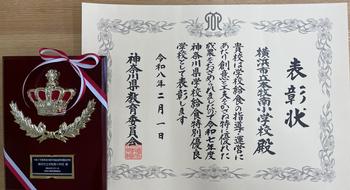 表彰状
横浜市立本牧南小学校 殿
貴校は学校給食の指導・運営に
あたり創意と工夫をこらし特に優れた
成果をおさめられましたので令和七年度
神奈川県学校給食特別優良
学校として表彰します
令和八年二月一日
神奈川県教育委員会